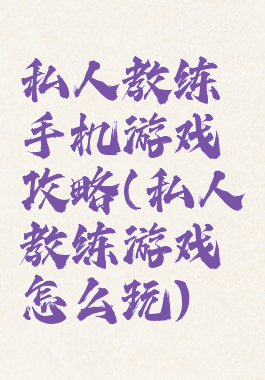 私人教练
手机游戏
攻略(私人
教练游戏
怎么玩)